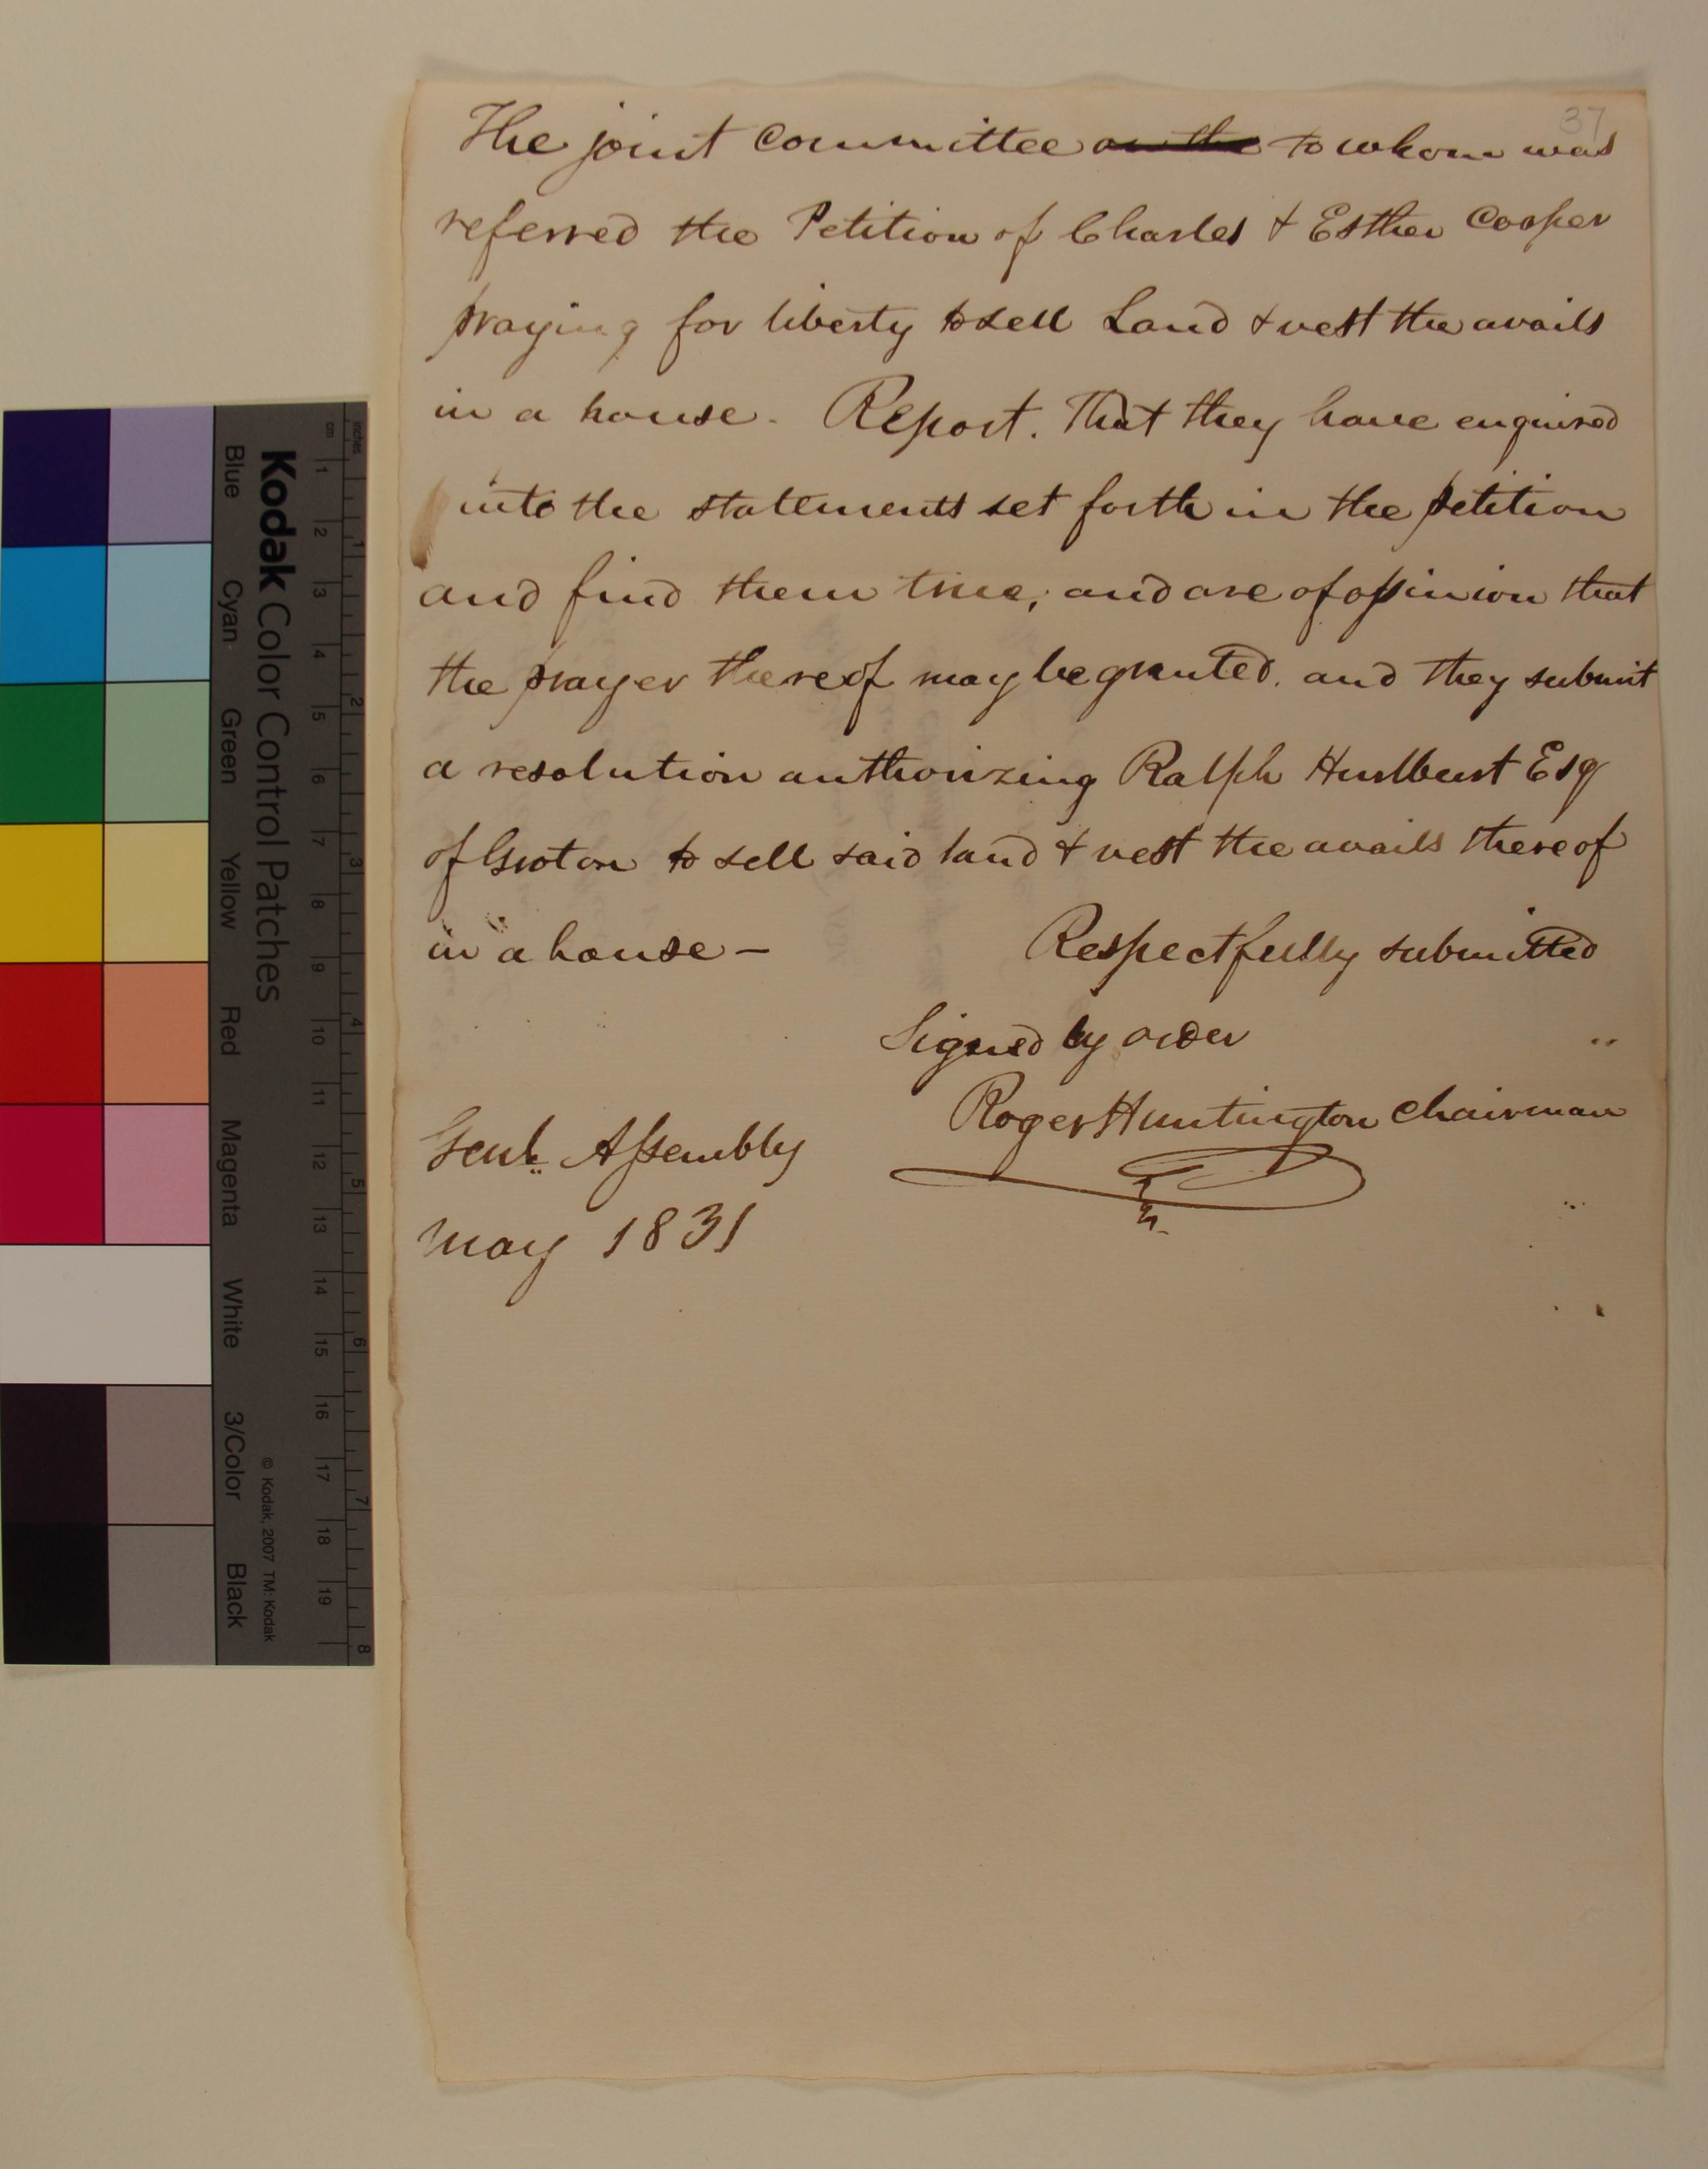 37
The joint Committee on the to whom was
referred the Petition of Charles & Esther Cooper
praying for liberty to sell Land & vest the avails
in a house. Report. That they have enquired
into the statements set forth in the petition
and find them true; and are of opinion that
the prayer thereof may be granted. and they submit
a resolution authorizing Ralph Hurlburt Esq
of Groton to sell said land & vest the avails thereof
in a house —
Respectfully submitted
Signed by order
Roger Huntington Chairman
Genl. Assembly
May 1831
Kodak Color Control Patches
Blue Cyan Green Yellow Red Magenta White 3/Color Black
© Kodak, 2007 TM: Kodak
cm 1 2 3 4 5 6 7 8 9 10 11 12 13 14 15 16 17 18 19
inches 1 2 3 4 5 6 7 8